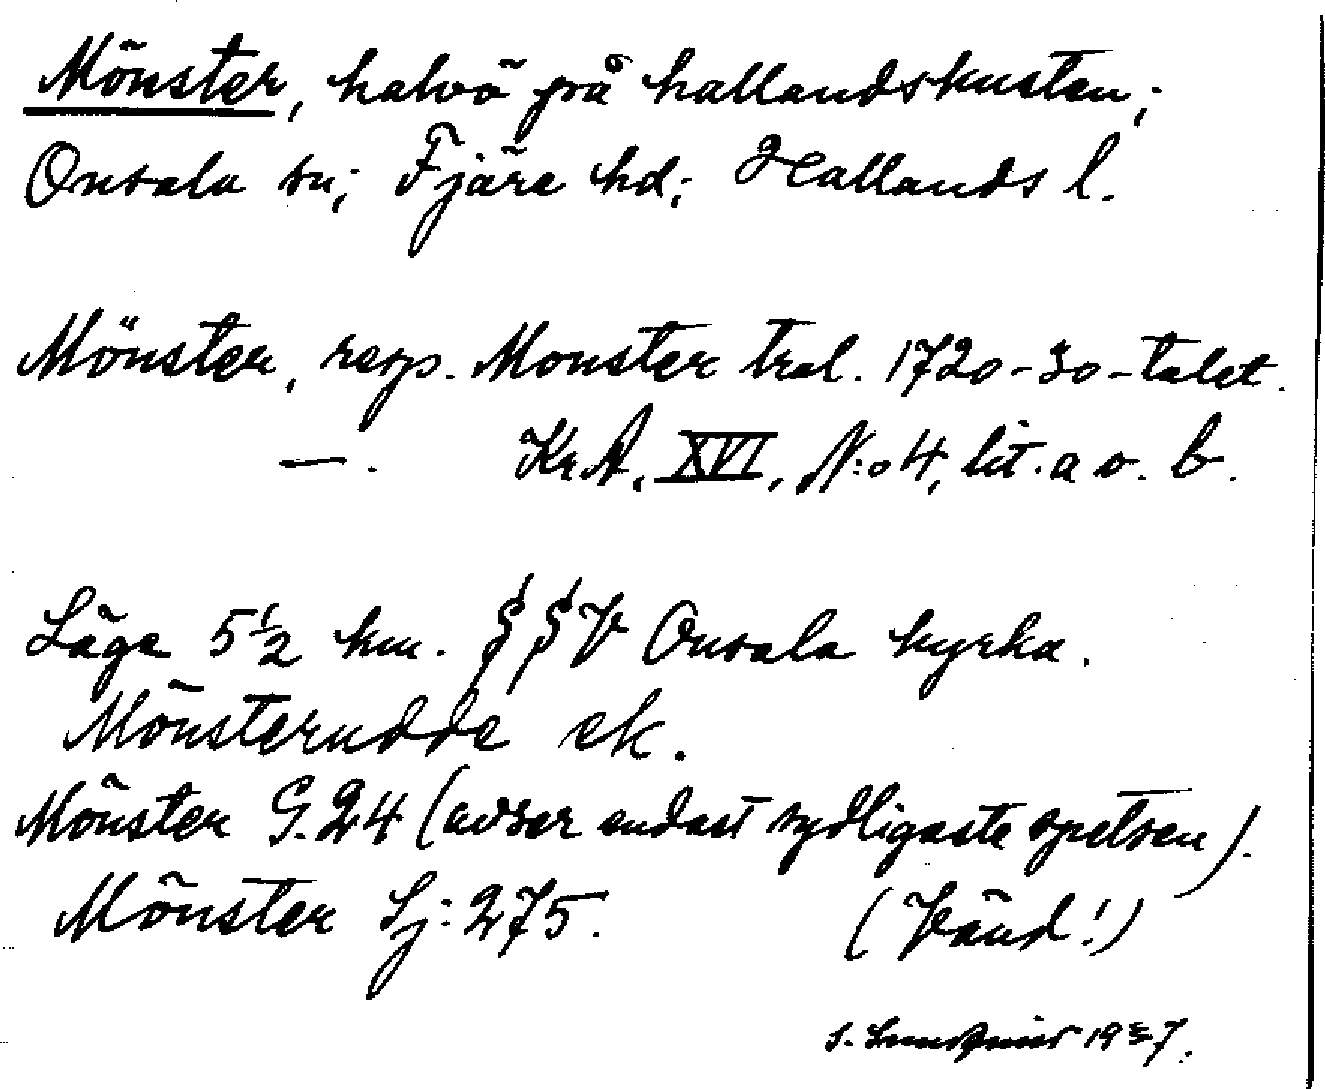 Mönster, halvö på hallandskusten;
Onsala sn; Fjäre hd; Hallands l.
Mönster, resp. Monster tral. 1720-30-talet.
—. KrA, XVI, N:o 4, lit. a o. b.
Läge 5 1/2 km. SSV Onsala kyrka.
Mönsterudde ek.
Mönster G. 24 (avser endast sydligaste spetsen).
Mönster Sj: 275. (Vänd!)
S. Lundquist 1937.